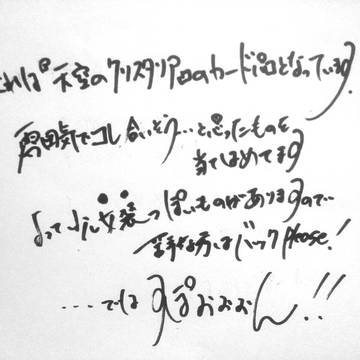 これは天空のクリスタリアのカードパロとなっています。
雰囲気でコレ合いそう…と思ったものを
当てはめてます
よって少し女装っぽいものがありますので…
苦手な方はバックplease!
……では すぽおおおん!!